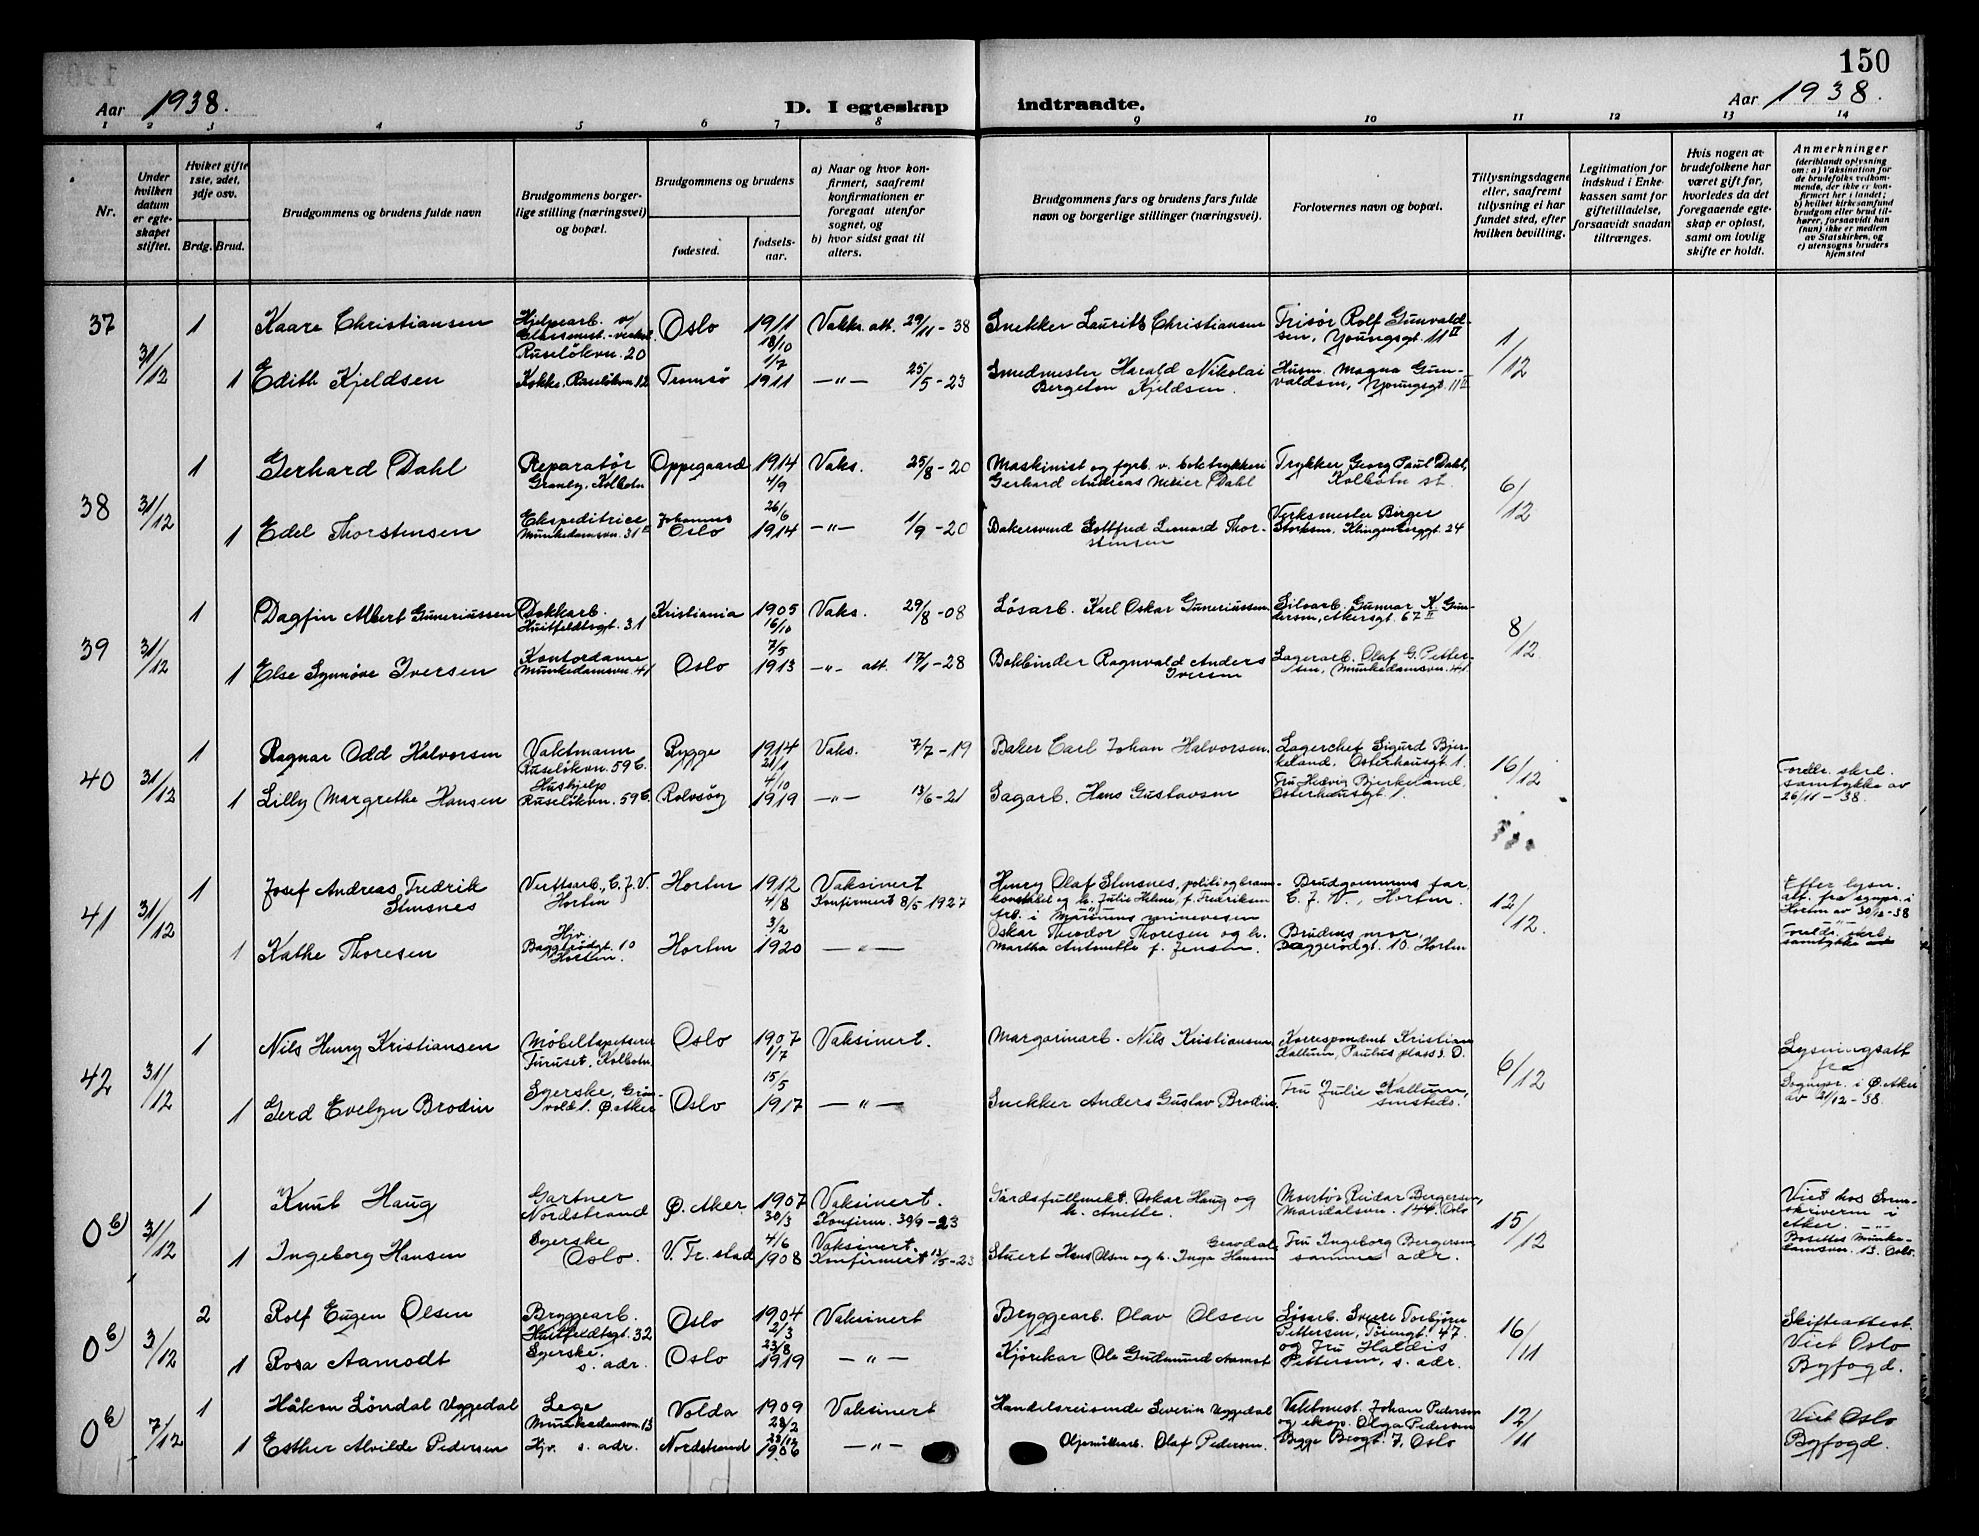 150
Aar 1938. D. I egteskap indtraadte. Aar 1938.
1 2 3 4 5 6 7 8 9 10 11 12 13 14
Nr.
Under hvilken datum er egteskapet stiftet.
Hviket gifte 1ste, 2det, 3dje osv.
Brdg. Brud.
Brudgommens og brudens fulde navn
Brudgommens borgerlige stilling (næringsvei) og bopæl.
Brudgommens og brudens
fødested. fødselsaar.
a) Naar og hvor konfirmert, saafremt konfirmationen er foregaat utenfor sognet, og
b) hvor sidst gaat til alters.
Brudgommens fars og brudens fars fulde navn og borgerlige stillinger (næringsvei).
Forlovernes navn og bopæl.
Tillysningsdagene eller, saafremt tillysning ei har fundet sted, efter hvilken bevilling.
Legitimation for indskud i Enkekassen samt for giftetilladelse, forsaavidt saadan tiltrænges.
Hvis nogen av brudefolkene har været gift før, hvorledes da det foregaaende egteskap er opløst, samt om lovlig skifte er holdt.
Anmerkninger (deriblandt oplysning om: a) Vaksination for de brudefolks vedkommende, der ikke er konfirmert her i landet; b) hvilket kirkesamfund brudgom eller brud tilhører, forsaavidt han (hun) ikke er medlem av Statskirken, og c) utensogns bruders hjemsted
37 31/12 1 Kaare Christiansen Hjelpearb. v/ Ruseløkvn. 20 Oslo 1911 18/10 Vakks. att. 29/11-38 Snekker Laurits Christiansen Frisør Rolf Gunvaldsen, Youngsgt. 11 II 1/12
1 Edith Kjeldsen Kokke, Ruseløkvn. 12 Tromsø 1/7 1911 -"- 25/5-23 Smedmester Harald Nikolai Bergeton Kjeldsen. Husm. Magna Gunvaldsen, Youngsgt. 11 II
38 31/12 1 Gerhard Dahl Reparatør Granly, Kolbotn Oppegaard 1914 4/9 Vaks. 25/8-20 Maskinist og fyrb. v. boktrykkeri Gerhard Andreas Meier Dahl Trykker Georg Paul Dahl, Kolbotn st. 6/12
1 Edel Thorstensen Ekspeditrice Munkedamsvn. 31 II Johannes Oslo 26/6 1914 -"- 1/9-20 Bakersvend Gottfred Leonard Thorstensen Verksmester Birger Storksen, Klingenberggt. 24
39 31/12 1 Dagfin Albert Guneriussen Dokkarb. Huitfeldtsgt. 31 Kristiania 1905 16/10 Vaks. 29/8-08 Løsarb. Karl Oskar Guneriussen Siloarb. Gunnar K. Gundersen, Akersgt. 67 II 8/12
1 Else Synnøve Iversen Kontordame Munkedamsvn. 41 Oslo 7/5 1913 -"- att. 17/1-28 Bokbinder Ragnvald Anders Iversen Lagerarb. Olaf G. Pettersen, Munkedamsvn. 41
40 31/12 1 Ragnar Odd Halvorsen Vaktmann Ruseløkvn. 59 C. Rygge 1914 21/1 Vaks. 7/7-19 Baker Carl Johan Halvorsen. Lagerchef Sigurd Bjerkeland, Osterhausgt. 1. 16/12
1 Lilly Margrethe Hansen Hushjelp Ruseløkvn. 59 C. Rolvsøy 4/10 1919 -"- 13/6-21 Sagarb. Hans Gustavsen Fru Hedvig Bjerkeland, Osterhausgt. 1. Foreldr. skrl. samtykke av 26/11-38.
41 31/12 1 Josef Andreas Fredrik Stensnes Verftsarb., C.J.V. Horten Horten 1912 4/8 Vaksinert Konfirmert 8/5-1927 Henry Olaf Stensnes, politi og brannkonstabel og h. Julie Helene, f. Fredriksen arb. i Marinens minevesen Brudgommens far, C.J.V., Horten. 12/12. Efter lysn. att. fra sognpr. i Horten av 30/12-38
1 Kathe Thoresen Hjv. Baggerødgt. 10 Horten. Horten 3/2 1920 -"- Oskar Theodor Thoresen og h. Martha Antonette f. Jensen. Brudens mor, Baggerødgt. 10. Horten Foreldr. skrl. samtykke
42 31/12 1 Nils Henry Kristiansen Møbeltapetserer Furuset, Kolbotn Oslo 1907 1/7 Vaksinert. Margarinarb. Nils Kristiansen Korrespondent Kristian Kallum, Paulus plass 3. O. 6/12 Lysningsatt. fra Sognepr. i Ø. Aker av 21/12-38.
1 Gerd Evelyn Brodin Syerske, Grønvold 1. Ø. Aker Oslo 15/5 1917 -"- Snekker Anders Gustav Brodin. Fru Julie Kallum, smsteds.
0 6) 3/12 1 Knut Haug Gartner Nordstrand Ø. Aker. 1907 30/3 Vaksinert. Konfirm. 30/9-23 Gårdsfullmekt. Oskar Haug og h. Anette. Montør Reidar Bergersen, Maridalsvn. 144. Oslo 15/12 Viet hos Sorenskriveren i Aker. Bosettes Munkedamsvn. 13. Oslo.
1 Ingeborg Hansen Syerske Oslo. V. Fr.stad 4/6 1908 Vaksinert. Konfirmert 13/5-23 Stuert Hans Olsen og h. Inga Hansen Gravdal. Fru Ingeborg Bergersen, samme adr.
0 6) 3/12 2 Rolf Eugen Olsen Bryggearb. Huitfeldtsgt. 32 Oslo 1904 2/3 Vaksinert Bryggearb. Olav Olsen Løsarb. Sverre Torbjørn Pettersen, Tøiengt. 47. og Fru Haldis Pettersen, s. adr. 16/11 Skifteattest. Viet Oslo Byfogd.
1 Rosa Aamodt Syerske. s. adr. Oslo 23/8 1919 -"- Kjørekar Ole Gudmund Aamot
0 6) 7/12 1 Håkon Løndal Uggedal Lege Munkedamsvn. 13 Volda 1909 28/2 Vaksinert Handelsreisende Severin Uggedal Vaktmest. Johan Pedersen og eksp. Olga Pedersen Bygge Brogt. 7, Oslo 12/11 Viet Oslo Byfogd.
1 Esther Alvilde Pedersen Hjv. s. adr. Nordstrand 28/12 1906 -"- Oljemøllearb. Olaf Pedersen.